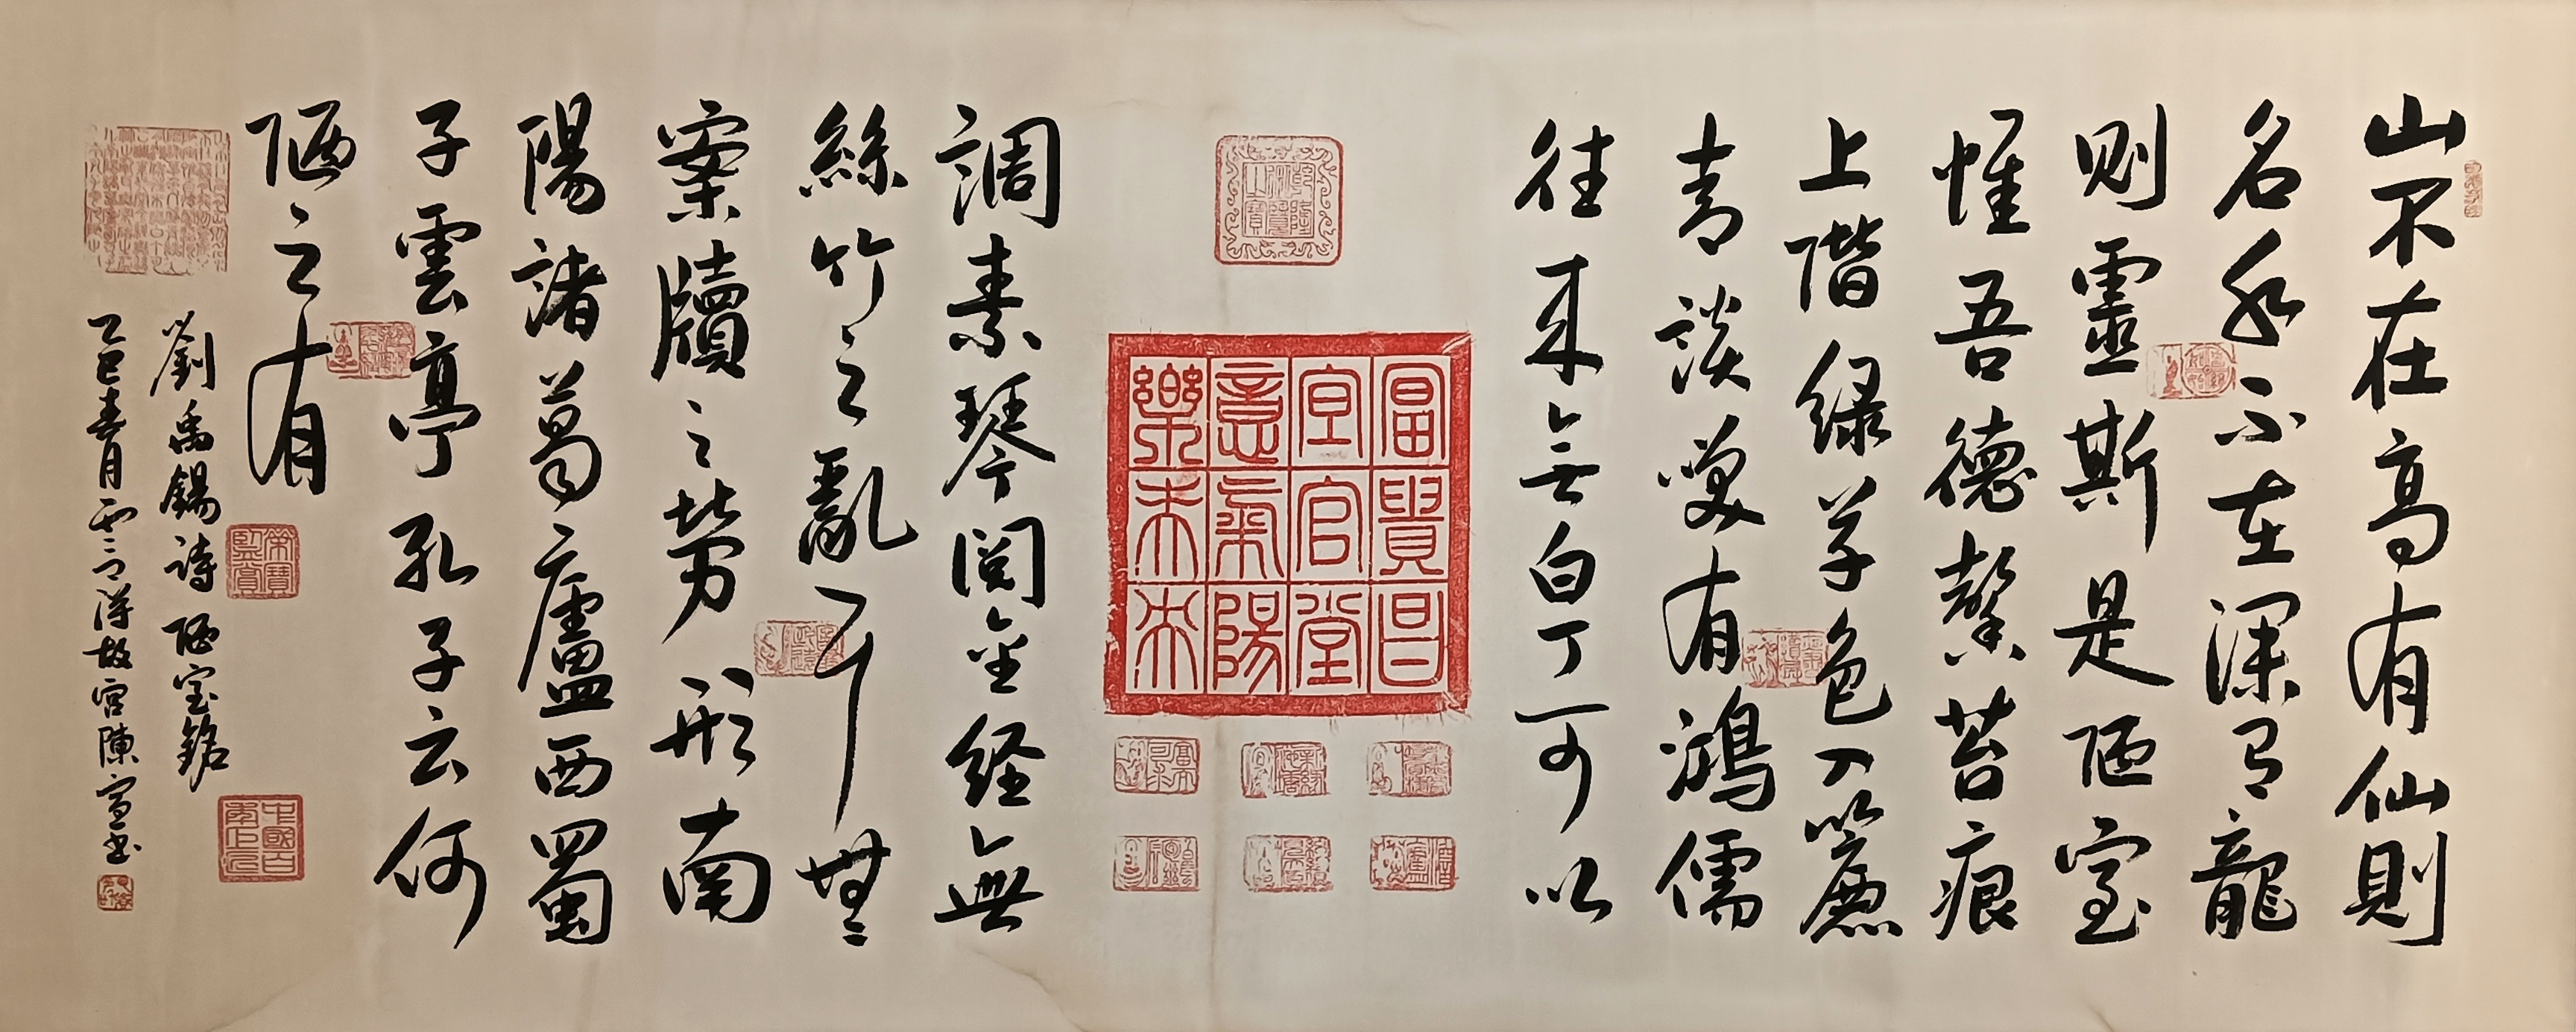 山不在高有仙則
名水不在深有龍
则靈斯是陋室
惟吾德馨苔痕
上階绿草色入簾
青談笑有鴻儒
往来無白丁可以
富貴昌
宜官堂
意氣陽
樂未央
調素琴閲金经無
絲竹之亂耳無
案牘之勞形南
陽諸葛廬西蜀
子雲亭孔子云何
陋之有
劉禹錫詩陋室銘
乙巳春月 故宮陳 書